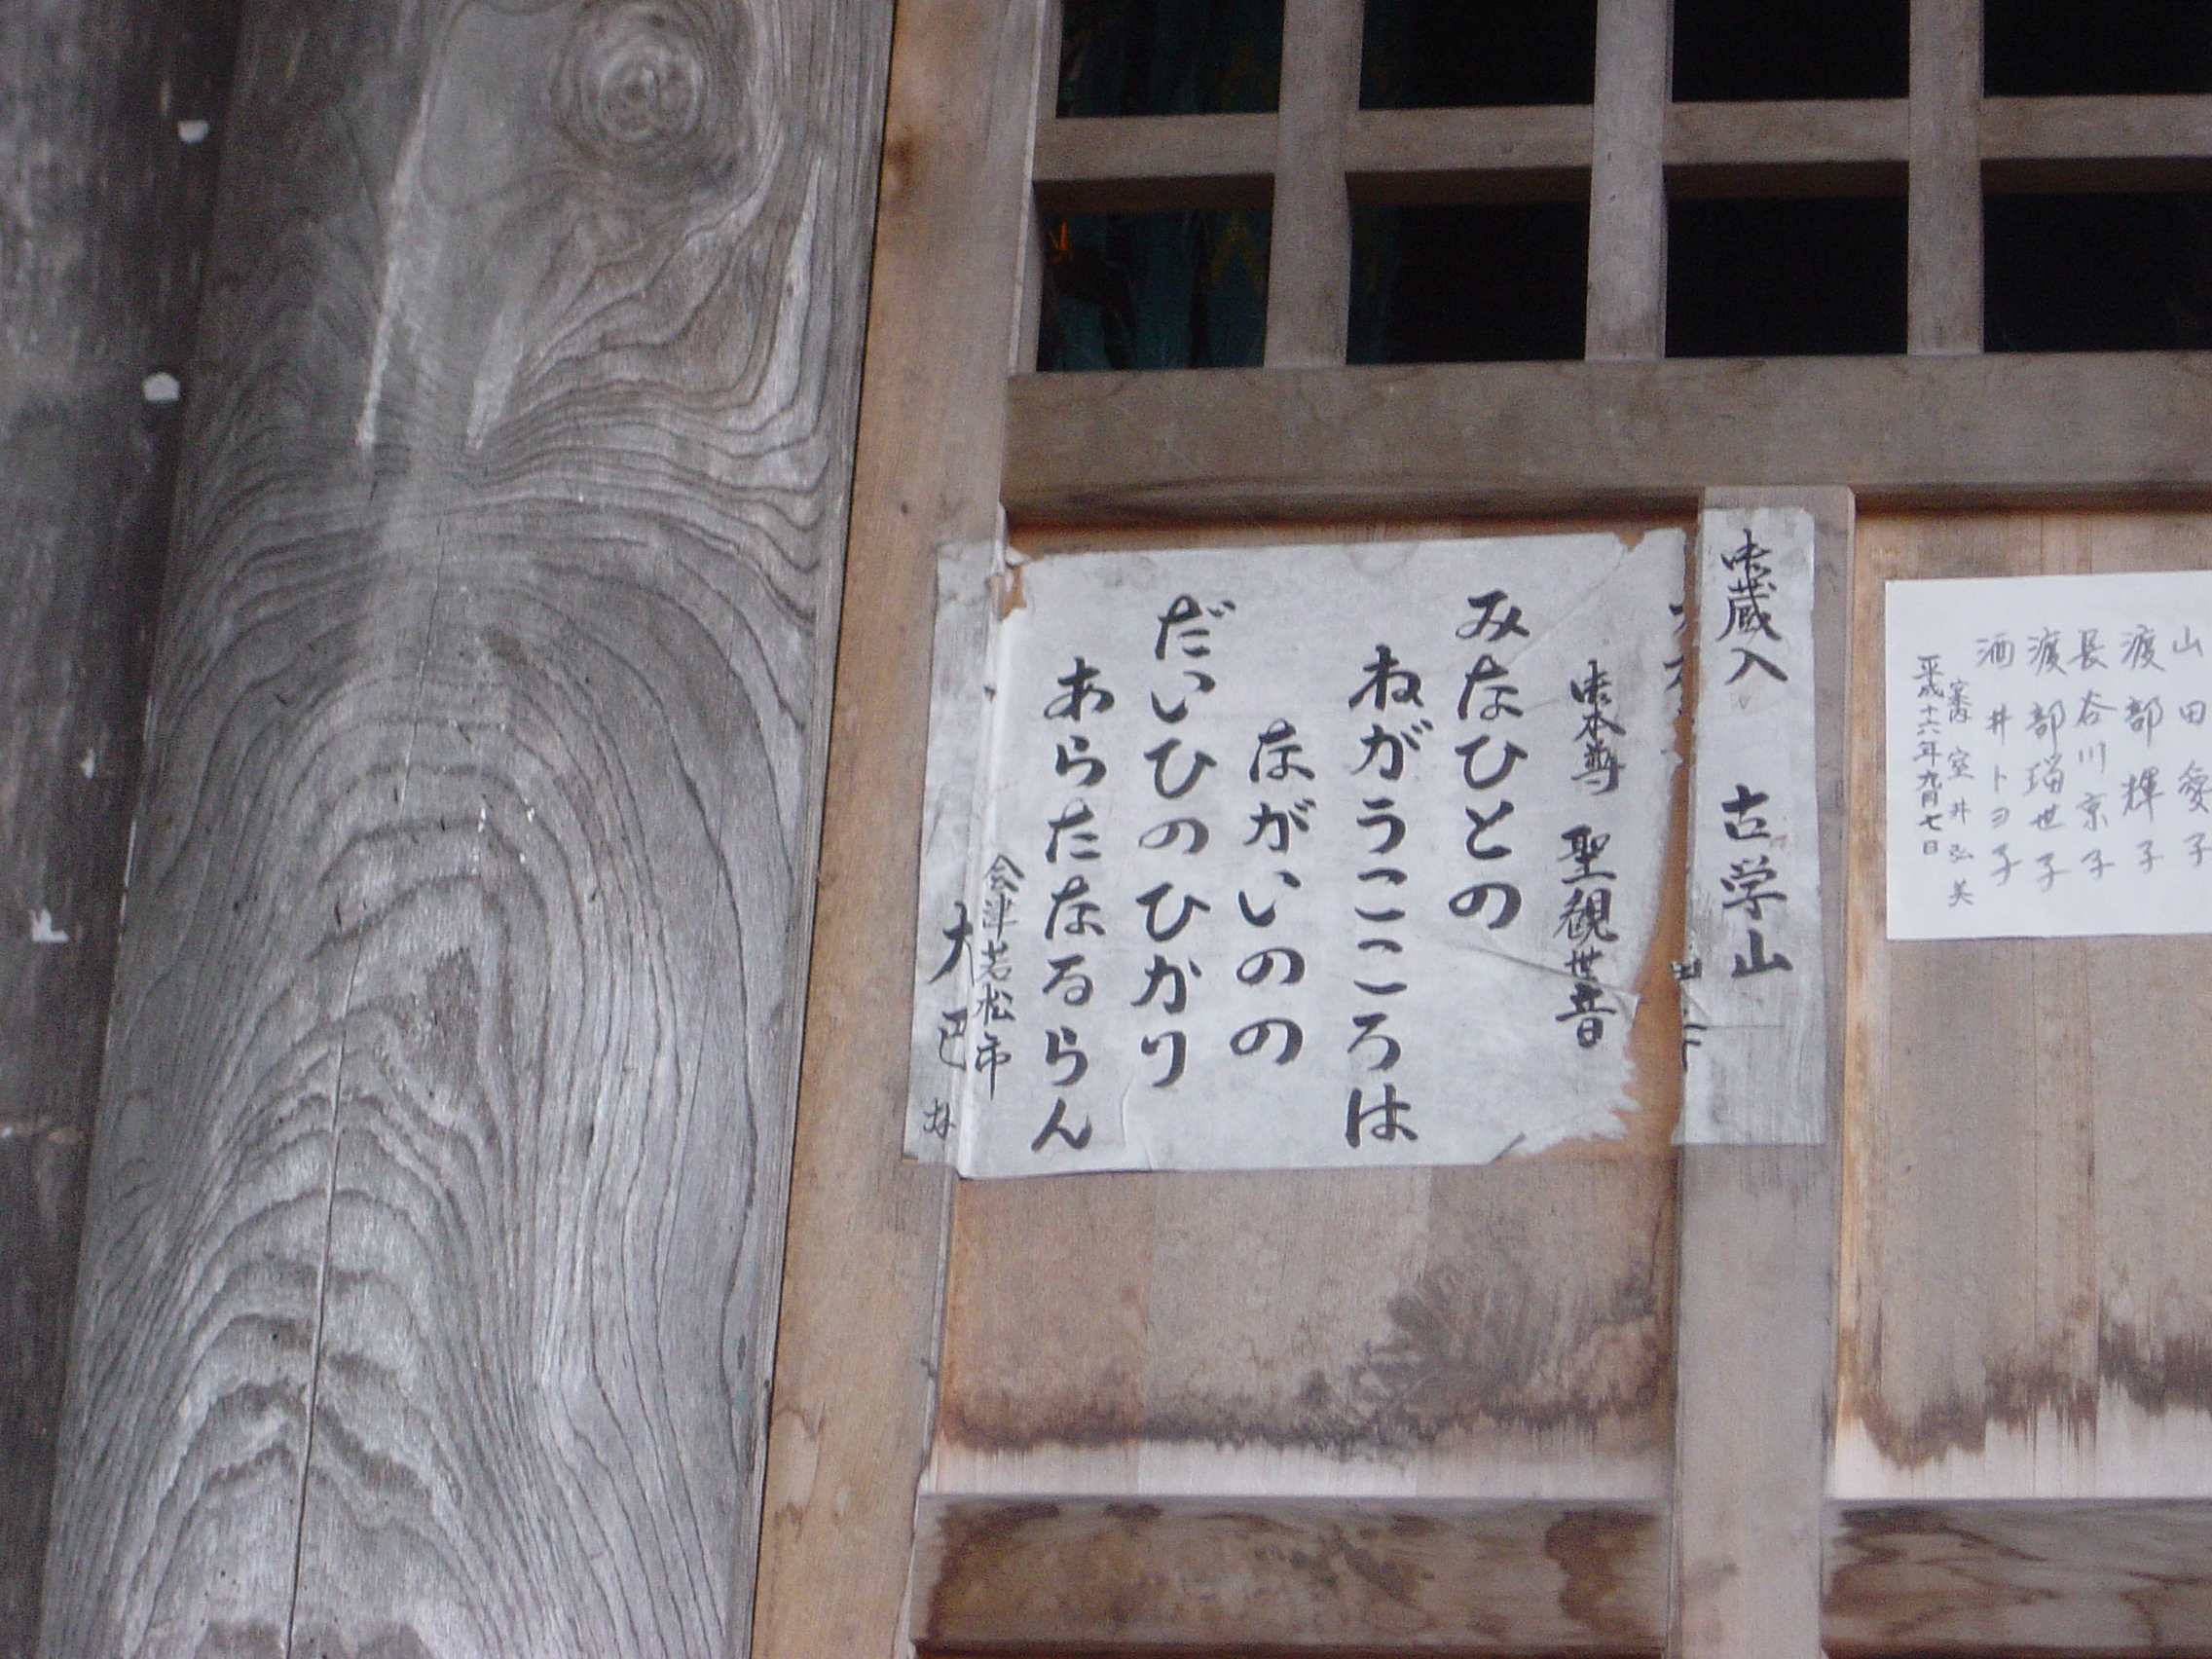 山田愛子
渡部輝子
長谷川京子
渡部瑠世子
酒井トヨ子
案内 室井弘美
平成十六年九月七日
御蔵入 古学山
御本尊 聖観世音
みなひとの
ねがうこころは
ながいのの
だいひのひかり
あらたなるらん
会津若松市